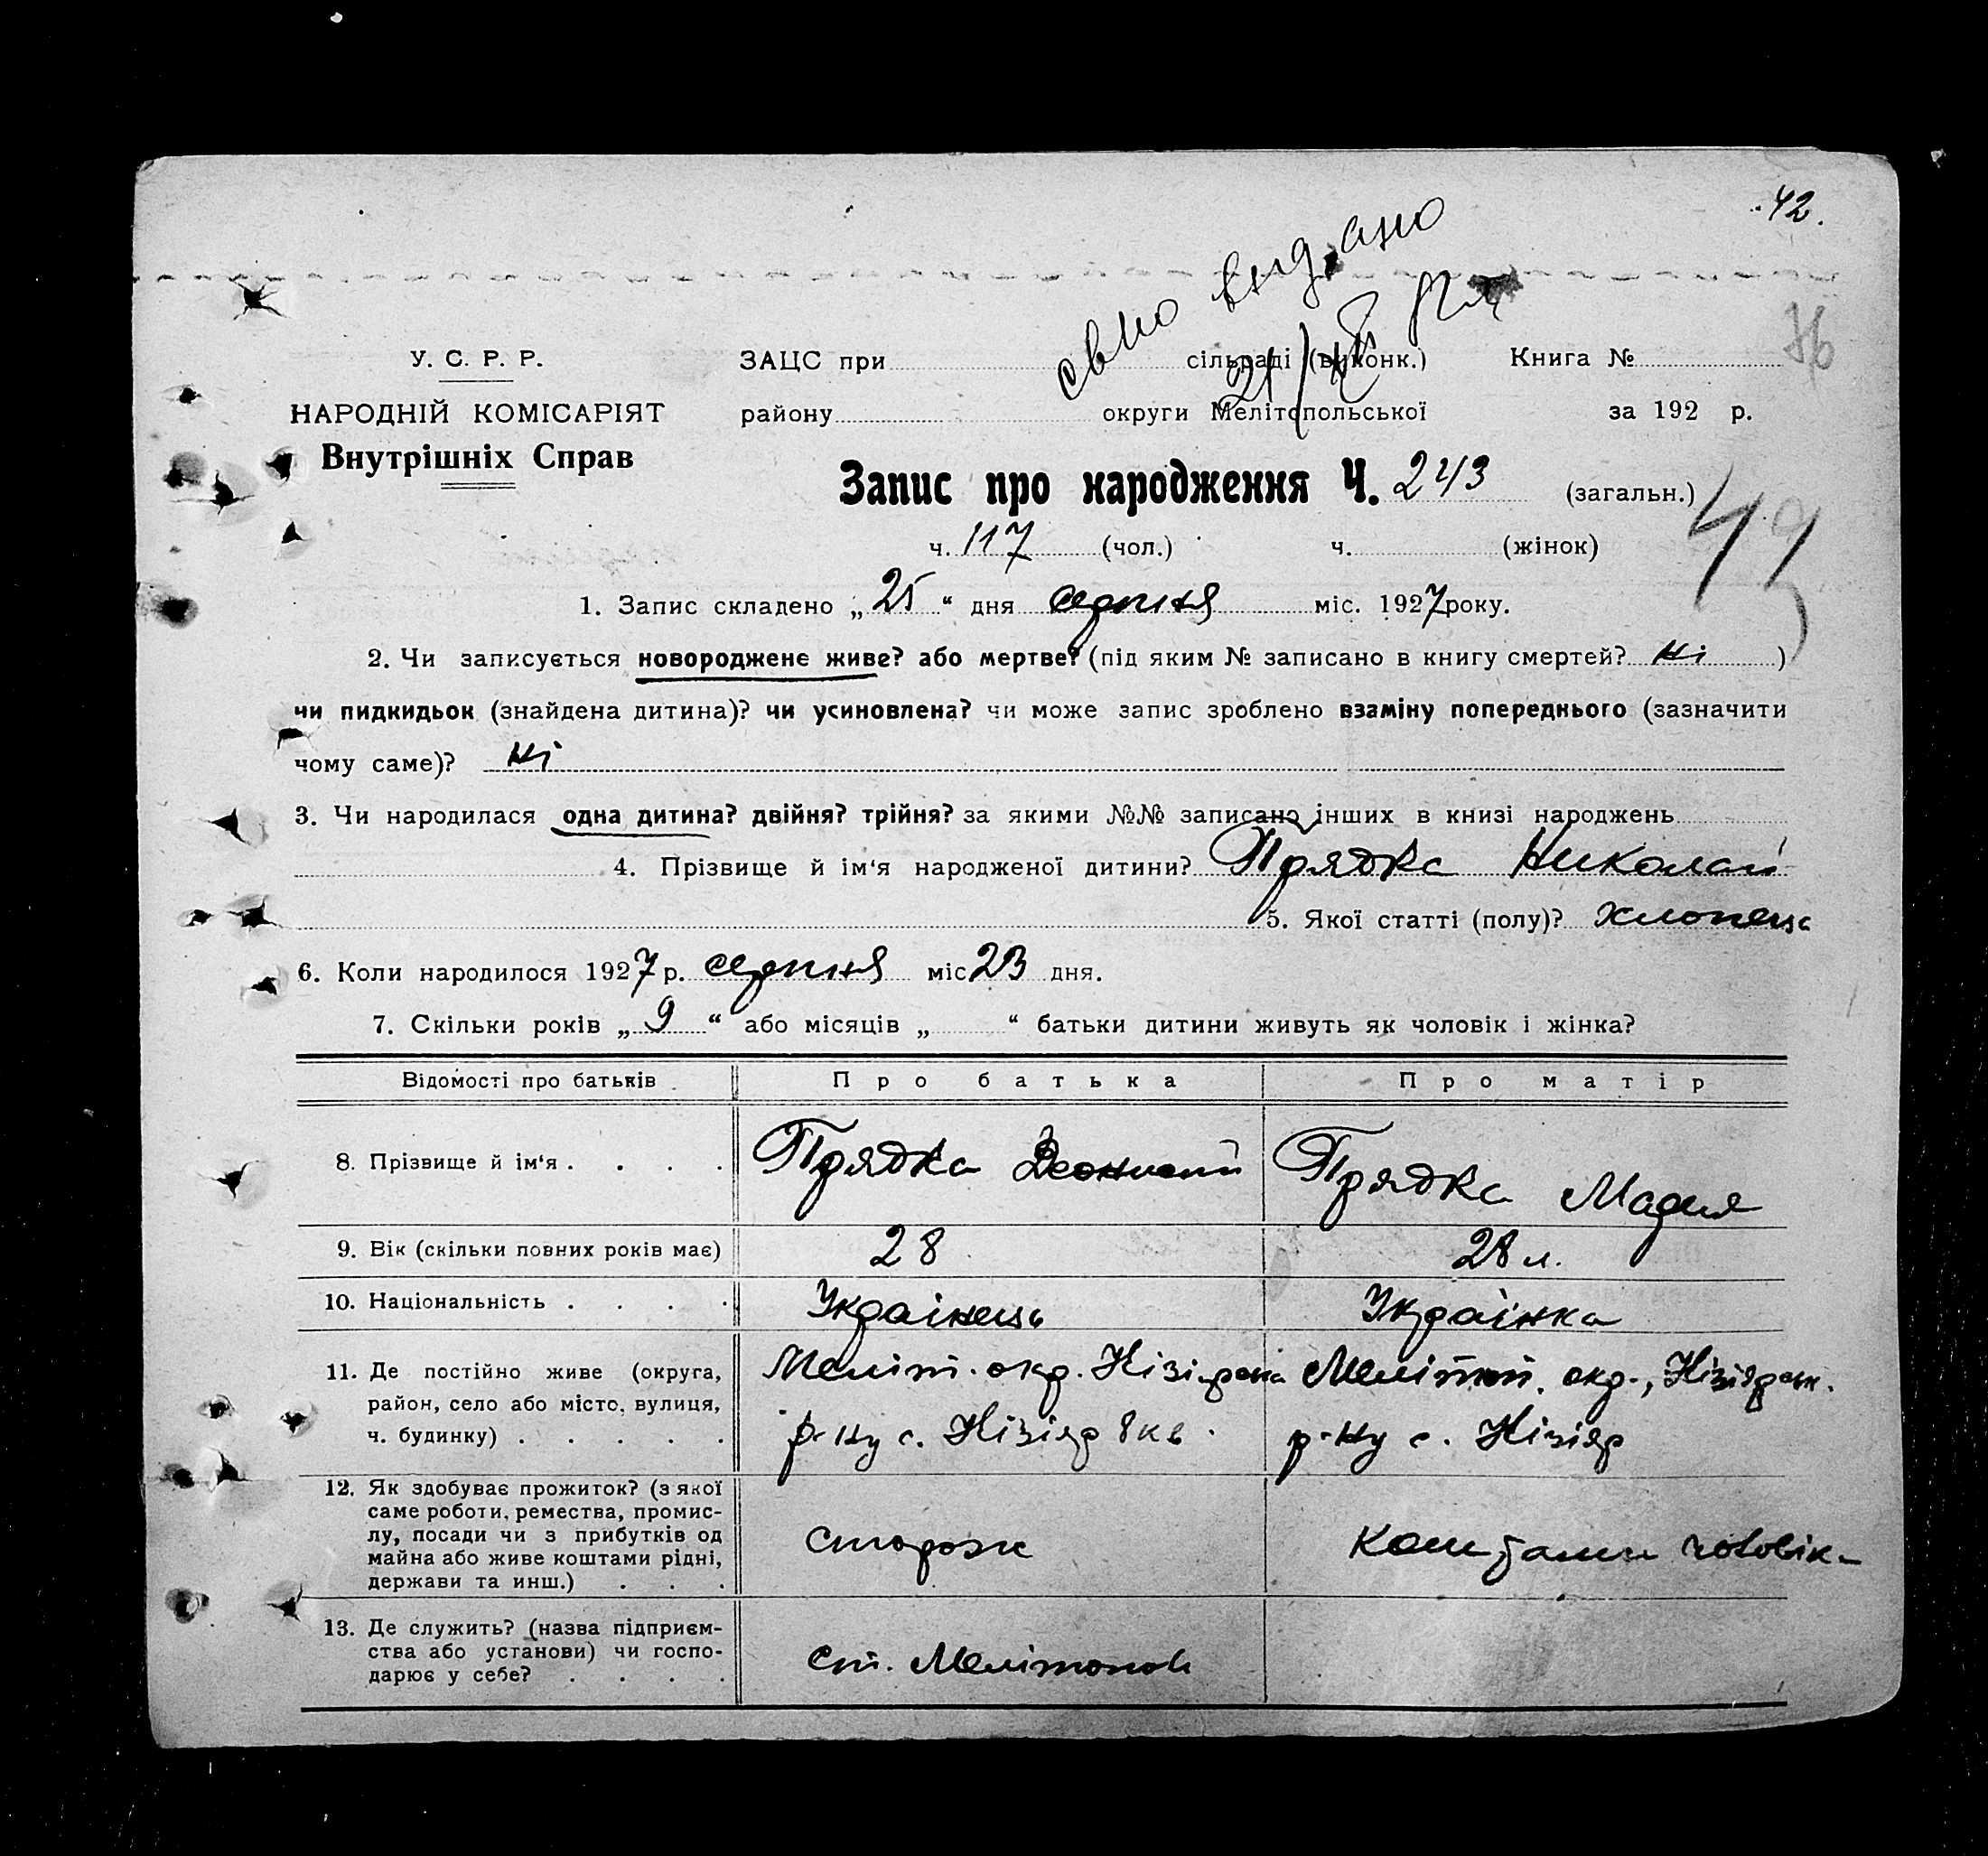 42.
свид видано
У. С. Р. Р. ЗАЦС при сільраді (виконк.) Книга №
НАРОДНІЙ КОМІСАРІЯТ району округи Мелітопольської за 192 р.
Внутрішніх Справ
Запис про народження Ч. 243 (загальн.)
ч. 117 (чол.) ч. (жінок)
1. Запис складено „25“ дня серпня міс. 1927 року.
2. Чи записується новороджене живе? або мертве? (під яким № записано в книгу смертей? ні )
чи пидкидьок (знайдена дитина)? чи усиновлена? чи може запис зроблено взаміну попереднього (зазначити
чому саме)? ні
3. Чи народилася одна дитина? двійня? трійня? за якими №№ записано інших в книзі народжень
4. Прізвище й ім‘я народженої дитини? Прядка Николай
5. Якої статті (полу)? хлопець
6. Коли народилося 1927 р. серпня міс 23 дня.
7. Скільки років „9“ або місяців „ “ батьки дитини живуть як чоловік і жінка?
Відомості про батьків Про батька Про матір
8. Прізвище й ім‘я . . . . Прядка Прядка Мария
9. Вік (скільки повних років має) 28 28 л.
10. Національність . . . . Українець Українка
11. Де постійно живе (округа, Меліт. окр. Кізіярськ Мелітоп. окр., Кізіярськ.
район, село або місто, вулиця,
ч. будинку) . . . . . р-ну с. Кізіяр 8 кв. р-ну с. Кізіяр
12. Як здобуває прожиток? (з якої
саме роботи, ремества, промис-
лу, посади чи з прибутків од сторож коштами чоловіка
майна або живе коштами рідні,
держави та инш.) . . .
13. Де служить? (назва підприєм-
ства або установи) чи госпо- ст. Мелітополь
дарює у себе? . . . .